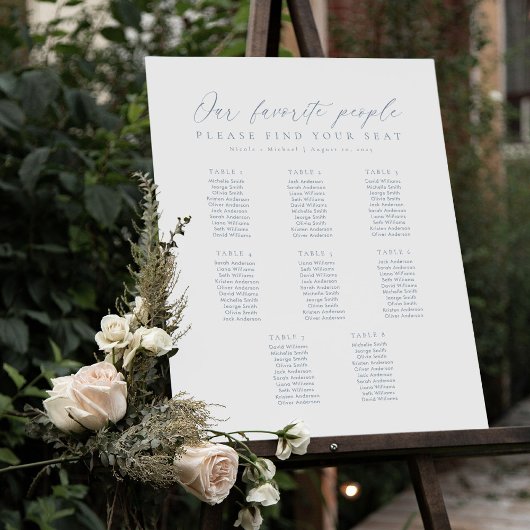 Our favorite people
PLEASE FIND YOUR SEAT
Nicole + Michael | August 10, 2025
TABLE 1
Michelle Smith
Jeorge Smith
Olivia Smith
Kristen Anderson
Oliver Anderson
Jack Anderson
Sarah Anderson
Liana Williams
Seth Williams
David Williams
TABLE 2
Jack Anderson
Sarah Anderson
Liana Williams
Seth Williams
David Williams
Michelle Smith
Jeorge Smith
Olivia Smith
Kristen Anderson
Oliver Anderson
TABLE 3
David Williams
Michelle Smith
Jeorge Smith
Olivia Smith
Jack Anderson
Sarah Anderson
Liana Williams
Seth Williams
Kristen Anderson
Oliver Anderson
TABLE 4
Sarah Anderson
Liana Williams
Seth Williams
Kristen Anderson
Oliver Anderson
David Williams
Michelle Smith
Jeorge Smith
Olivia Smith
Jack Anderson
TABLE 5
Liana Williams
Seth Williams
Kristen Anderson
Oliver Anderson
David Williams
Michelle Smith
Jeorge Smith
Olivia Smith
Jack Anderson
Sarah Anderson
TABLE 6
Jack Anderson
Sarah Anderson
Liana Williams
Seth Williams
David Williams
Michelle Smith
Jeorge Smith
Olivia Smith
Kristen Anderson
Oliver Anderson
TABLE 7
David Williams
Michelle Smith
Jeorge Smith
Olivia Smith
Jack Anderson
Sarah Anderson
Liana Williams
Seth Williams
Kristen Anderson
Oliver Anderson
TABLE 8
Michelle Smith
Jeorge Smith
Olivia Smith
Kristen Anderson
Oliver Anderson
Jack Anderson
Sarah Anderson
Liana Williams
Seth Williams
David Williams